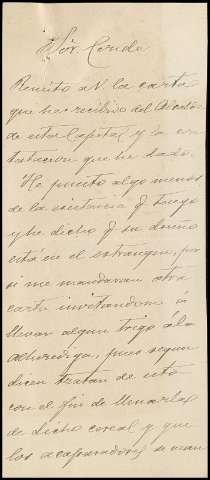 Sór. Conde
Remito a V. la carta
que he recibido del Alcalde
de esta Capital y la con
testacion que he dado.
He puesto algo menos
de la existencia q. tengo
y he dicho q. su dueño
está en el extrangero, por
si me mandaran otra
carta invitandome á
llevar algun trigo á la
alhondiga, pues segun
dicen tratan de esto
con el fin de llenarlas
de dicho cereal y que
los acaparadores se vean